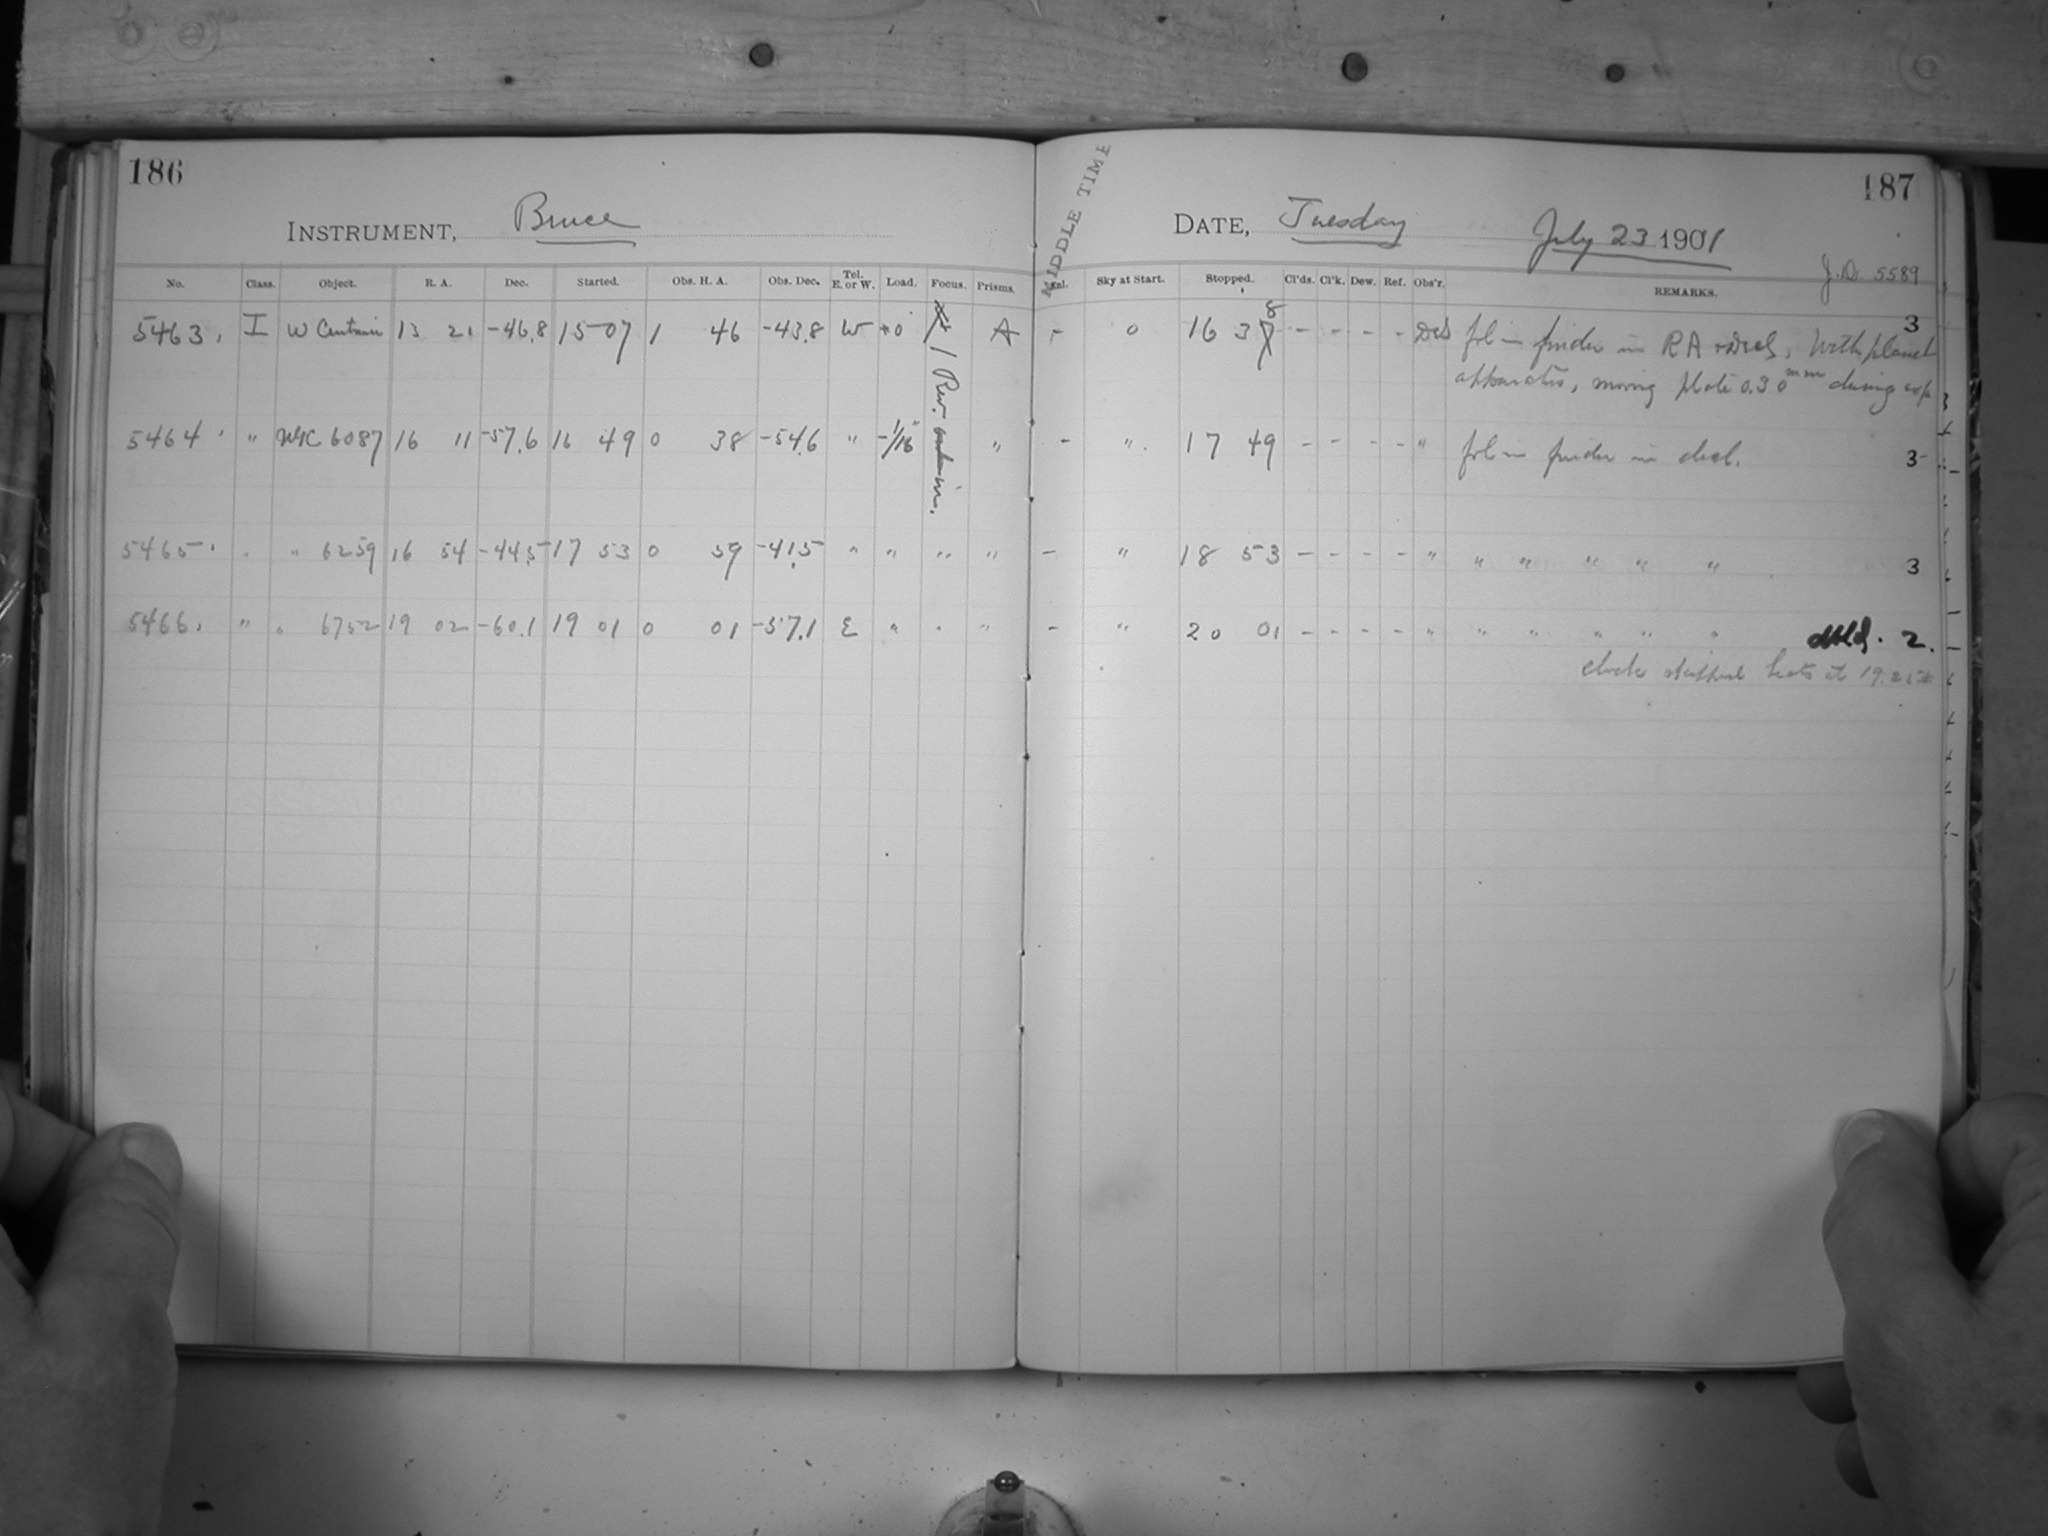 186
INSTRUMENT, Bruce
No. Class. Object. R. A. Dec. Started. Obs. H. A. Obs. Dec. Tel. E. or W. Load. Focus. Prisms.
5463. I W Centauri 13 21 -46.8 15 07 1 46 -43.8 W +0 A
5464 " NGC 6087 16 11 -57.6 16 49 0 38 -54.6 " -1/16 "
5465 . " 6259 16 54 -44.5 17 53 0 59 -41.5 " " " "
5466. " " 6752 19 02 -60.1 19 01 0 01 -57.1 E " " "
1 Rev.
MIDDLE TIME
187
DATE, Tuesday July 23 1901
J.D. 5589
Sky at Start. Stopped. Cl'ds. Cl'k. Dew. Ref. Obs'r. REMARKS.
- 0 16 38 - - - - fol in finder in RA + Decl, With planet 3
apparatus, moving plate 0.30 mm during exp
- " 17 49 - - - - " fol in finder in decl. 3
- " 18 53 - - - - " " " " " " 3
- " 20 01 - - - - " " " " " " dbld. 2.
clock skipped beats at 19.25